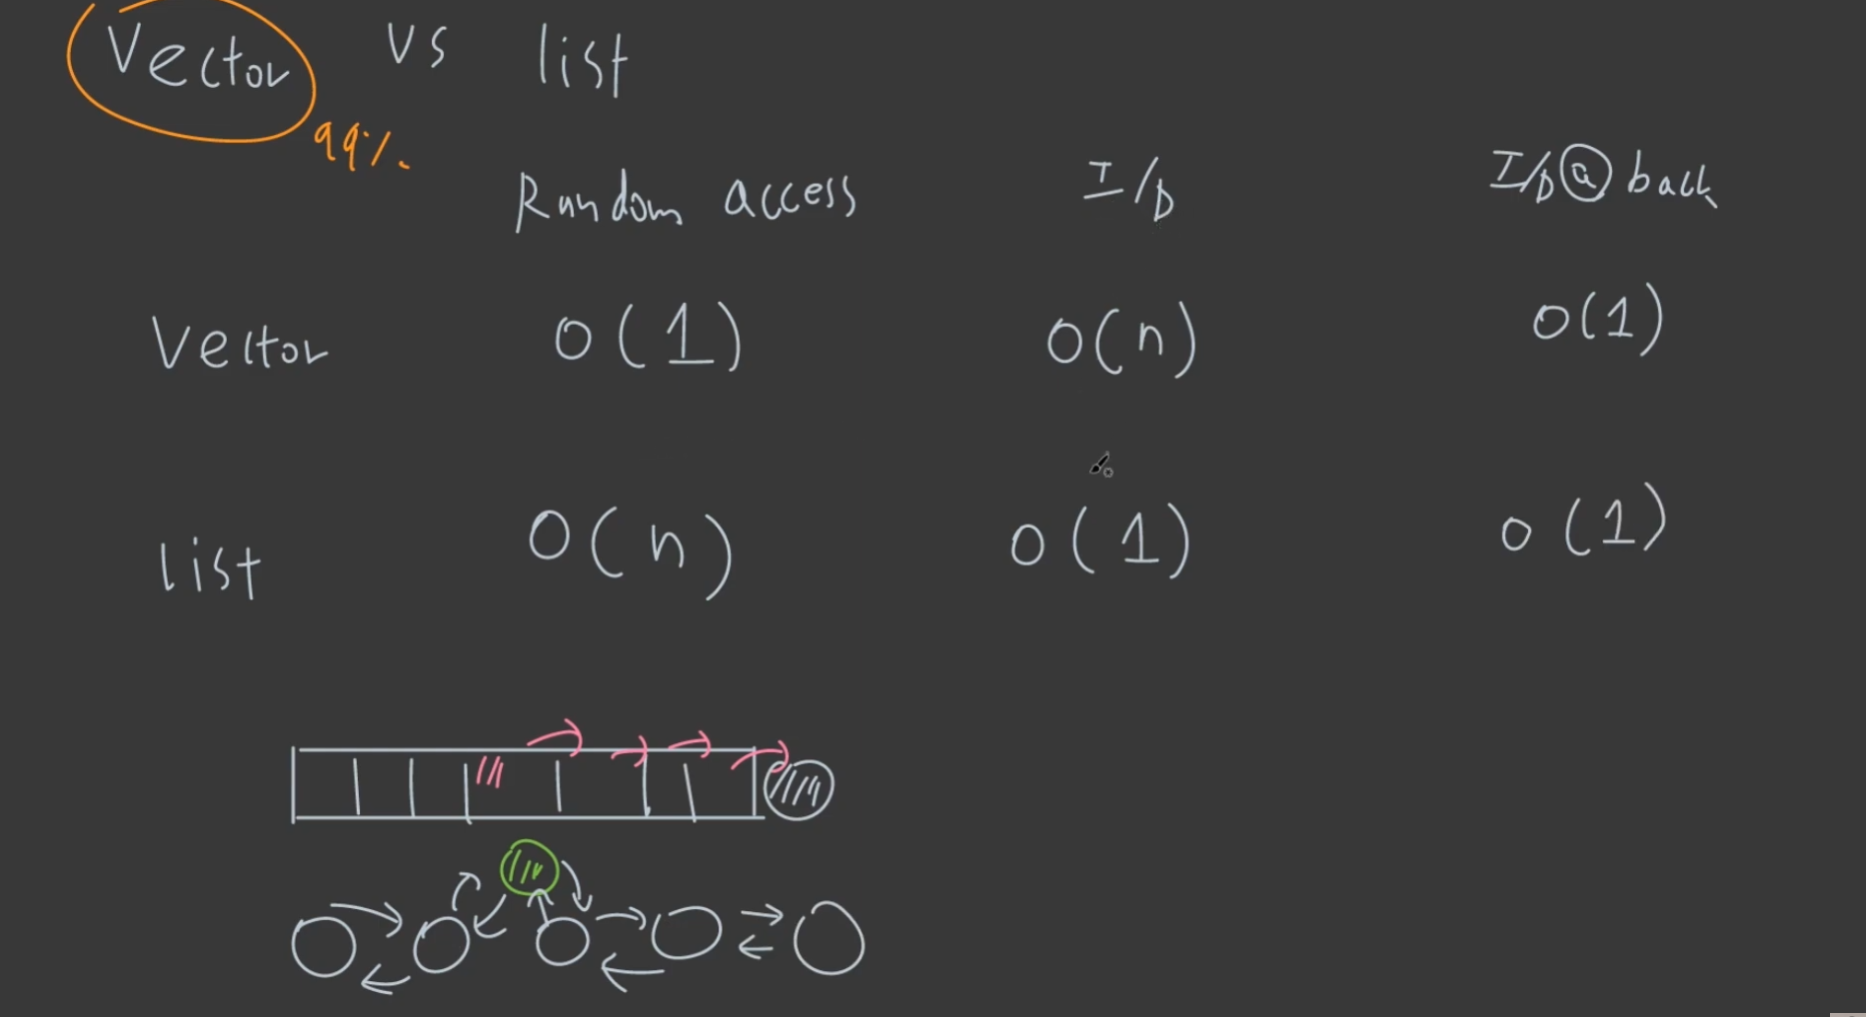 Vector vs list
99%.
Random access I/D I/D@back
Vector O(1) O(n) O(1)
list O(n) O(1) O(1)